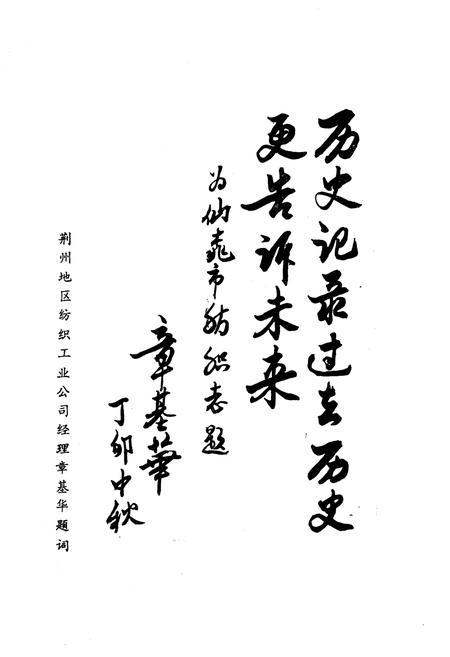 历史记录过去历史
更告诉未来
为仙桃市纺织志题
章基華
丁卯中秋
荆州地区纺织工业公司经理章基华题词